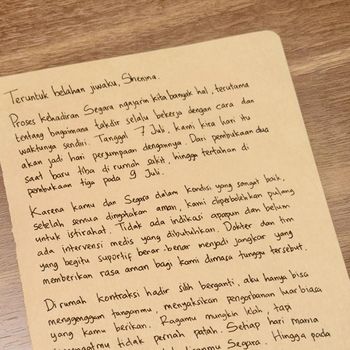 Teruntuk belahan jiwaku, Shenina.
Proses kehadiran Segara ngajarin kita banyak hal, terutama
tentang bagaimana takdir selalu bekerja dengan cara dan
waktunya sendiri. Tanggal 7 Juli, kami kira hari itu
akan jadi hari perjumpaan dengannya. Dari pembukaan dua
saat baru tiba di rumah sakit, hingga tertahan di
pembukaan tiga pada 9 Juli.
Karena kamu dan Segara dalam kondisi yang sangat baik,
setelah semua dinyatakan aman, kami diperbolehkan pulang
untuk istirahat. Tidak ada indikasi apapun dan belum
ada intervensi medis yang dibutuhkan. Dokter dan tim
yang begitu suportif benar-benar menjadi jangkar yang
memberikan rasa aman bagi kami dimasa tunggu tersebut.
Di rumah kontraksi hadir silih berganti, aku hanya bisa
menggenggam tanganmu, menyaksikan pengorbanan luar biasa
yang kamu berikan. Ragamu mungkin lelah, tapi
semangatmu tidak pernah patah. Setiap hari mama
Segara. Hingga pada